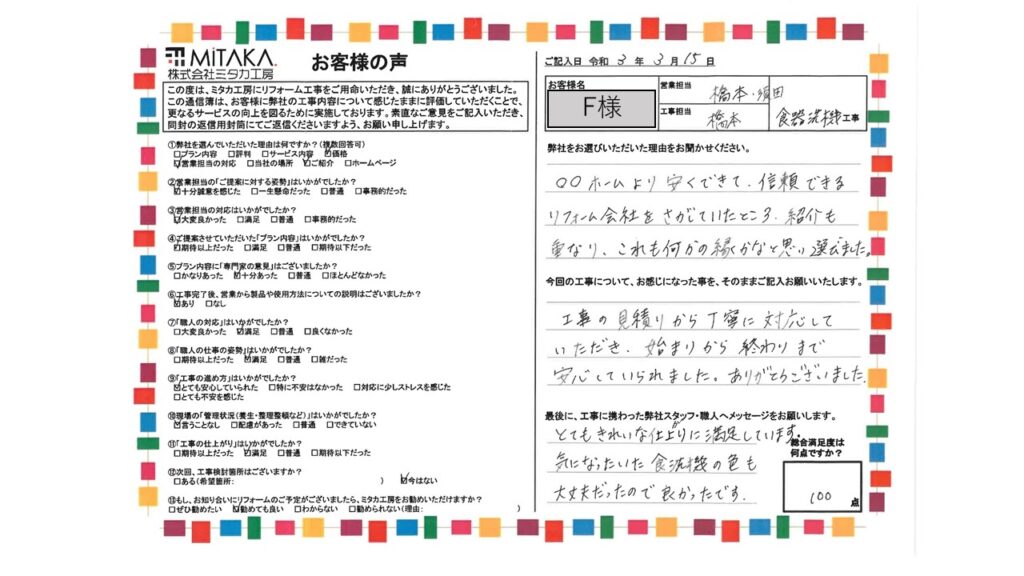 MiTAKA
株式会社ミタカ工房
お客様の声
この度は、ミタカ工房にリフォーム工事をご用命いただき、誠にありがとうございました。
この通信簿は、お客様に弊社の工事内容について感じたままに評価していただくことで、
更なるサービスの向上を図るために実施しております。素直なご意見をご記入いただき、
同封の返信用封筒にてご返信くださいますよう、お願い申し上げます。
①弊社を選んでいただいた理由は何ですか?(複数回答可)
□プラン内容 □評判 □サービス内容 ☑価格
☑営業担当の対応 □当社の場所 ☑ご紹介 □ホームページ
②営業担当の「ご提案に対する姿勢」はいかがでしたか?
☑十分誠意を感じた □一生懸命だった □普通 □事務的だった
③営業担当の対応はいかがでしたか?
☑大変良かった □満足 □普通 □事務的だった
④ご提案させていただいた「プラン内容」はいかがでしたか?
☑期待以上だった □満足 □普通 □期待以下だった
⑤プラン内容に「専門家の意見」はございましたか?
□かなりあった ☑十分あった □普通 □ほとんどなかった
⑥工事完了後、営業から製品や使用方法についての説明はございましたか?
☑あり □なし
⑦「職人の対応」はいかがでしたか?
□大変良かった ☑満足 □普通 □良くなかった
⑧「職人の仕事の姿勢」はいかがでしたか?
□期待以上だった ☑満足 □普通 □雑だった
⑨「工事の進め方」はいかがでしたか?
☑とても安心していられた □特に不安はなかった □対応に少しストレスを感じた
□とても不安を感じた
⑩現場の「管理状況(養生・整理整頓など)」はいかがでしたか?
☑言うことなし □配慮があった □普通 □できていない
⑪「工事の仕上がり」はいかがでしたか?
□期待以上だった ☑満足 □普通 □期待以下だった
⑫次回、工事検討箇所はございますか?
□ある(希望箇所: ) ☑今はない
⑬もし、お知り合いにリフォームのご予定がございましたら、ミタカ工房をお勧めいただけますか?
□ぜひ勧めたい ☑勧めても良い □わからない □勧められない(理由: )
ご記入日 令和 3 年 3 月 15 日
お客様名
F様
営業担当 橋本・須田
工事担当 橋本
食器洗機工事
弊社をお選びいただいた理由をお聞かせください。
○○ホームより安くできて、信頼できる
リフォーム会社をさがしていたところ、紹介も
重なり、これも何かの縁かなと思い選びました。
今回の工事について、お感じになった事を、そのままご記入お願いいたします。
工事の見積りから丁寧に対応して
いただき、始まりから終わりまで
安心していられました。ありがとうございました。
最後に、工事に携わった弊社スタッフ・職人へメッセージをお願いします。
とてもきれいな仕上がりに満足しています。
気になったいた食洗機の色も
大丈夫だったので良かったです。
総合満足度は
何点ですか?
100 点